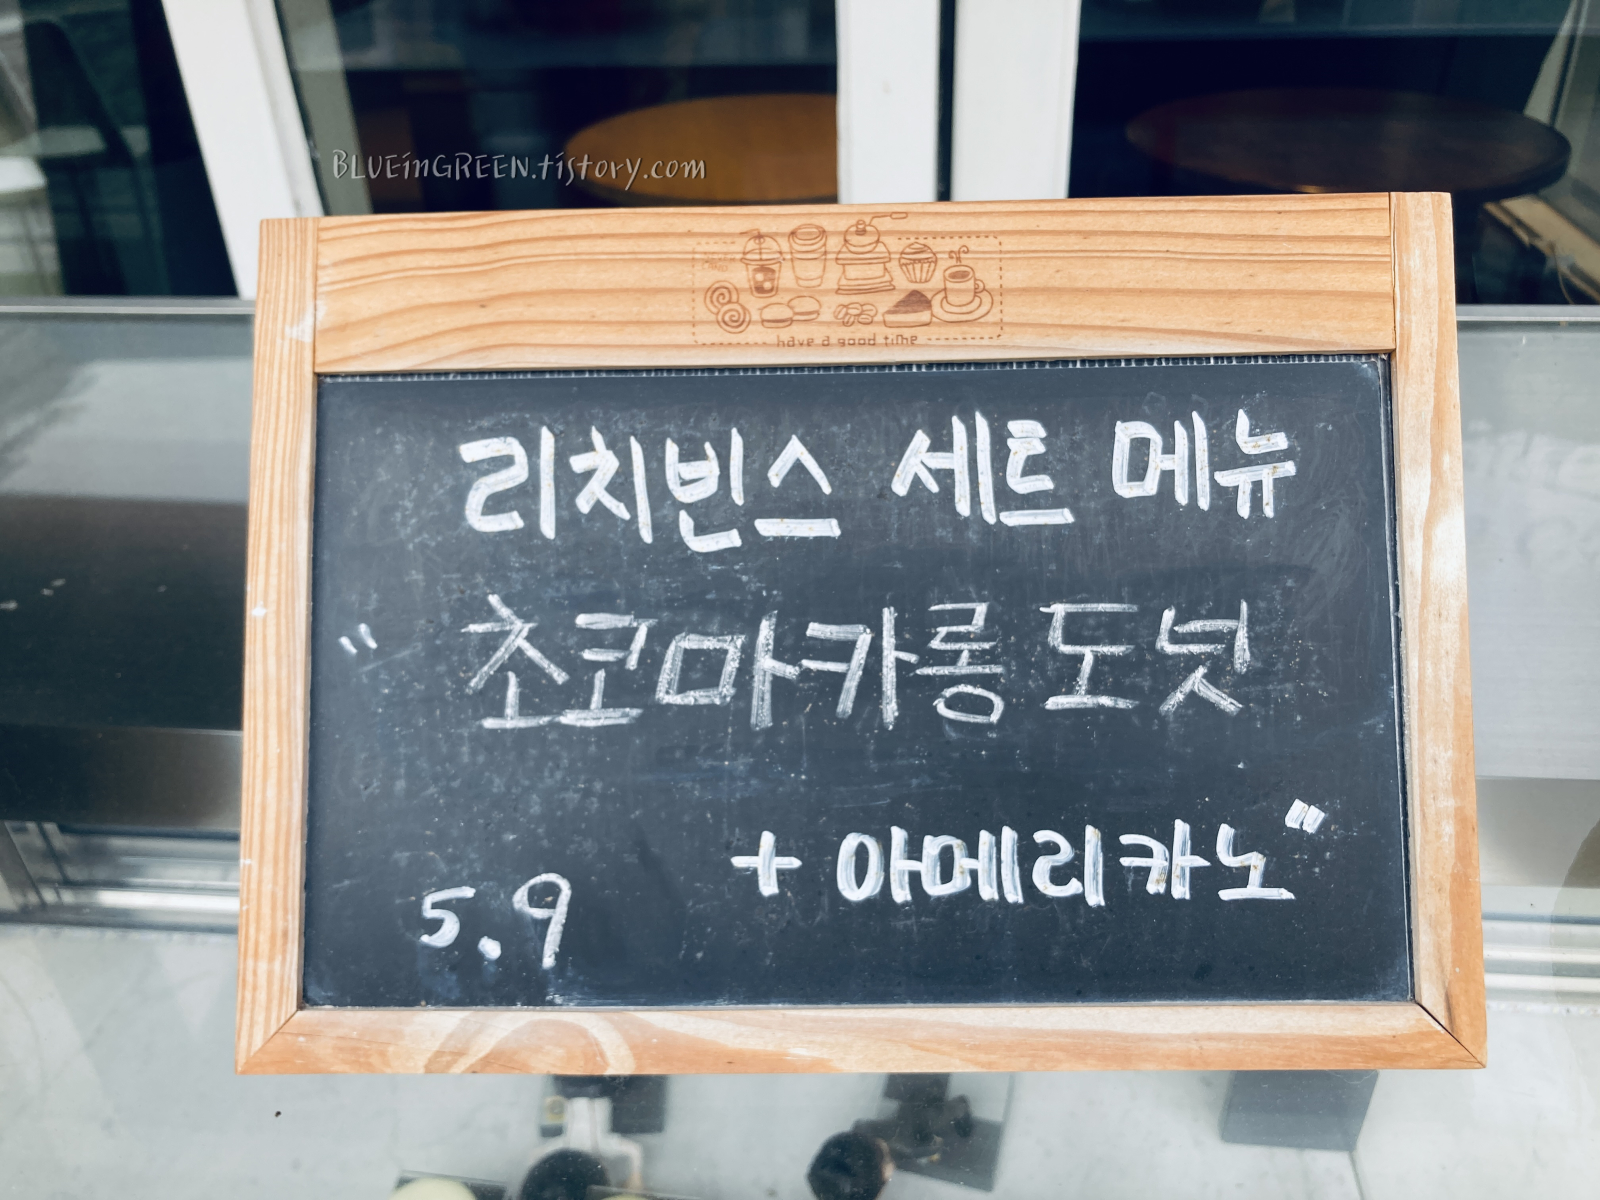 BLUEinGREEN.tistory.com
have a good time
리치빈스 세트 메뉴
" 초코마카롱 도넛
+ 아메리카노 "
5.9